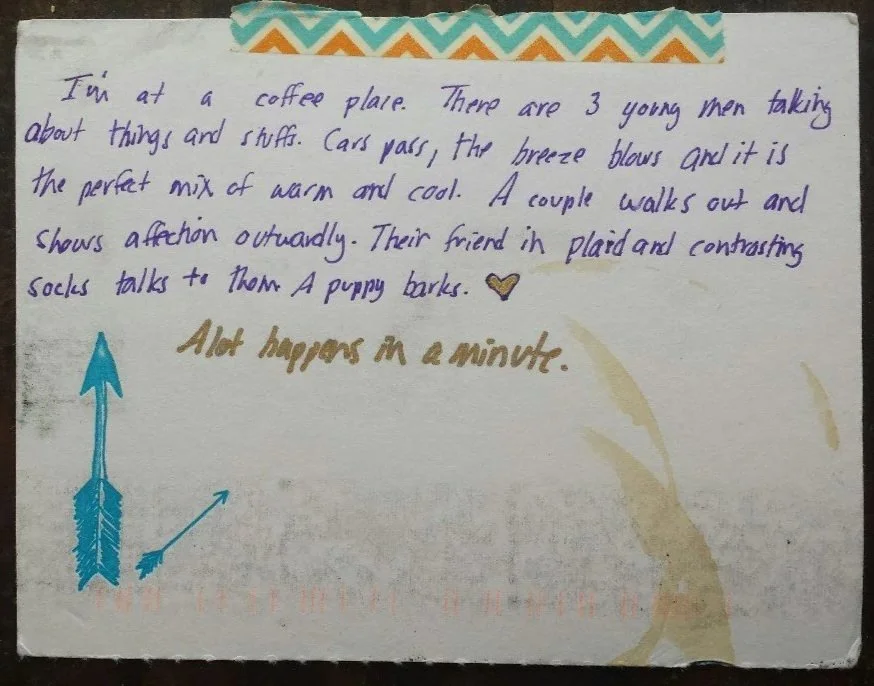 I'm at a coffee place. There are 3 young men talking
about things and stuffs. Cars pass, the breeze blows and it is
the perfect mix of warm and cool. A couple walks out and
shows affection outwardly. Their friend in plaid and contrasting
socks talks to them. A puppy barks.
A lot happens in a minute.